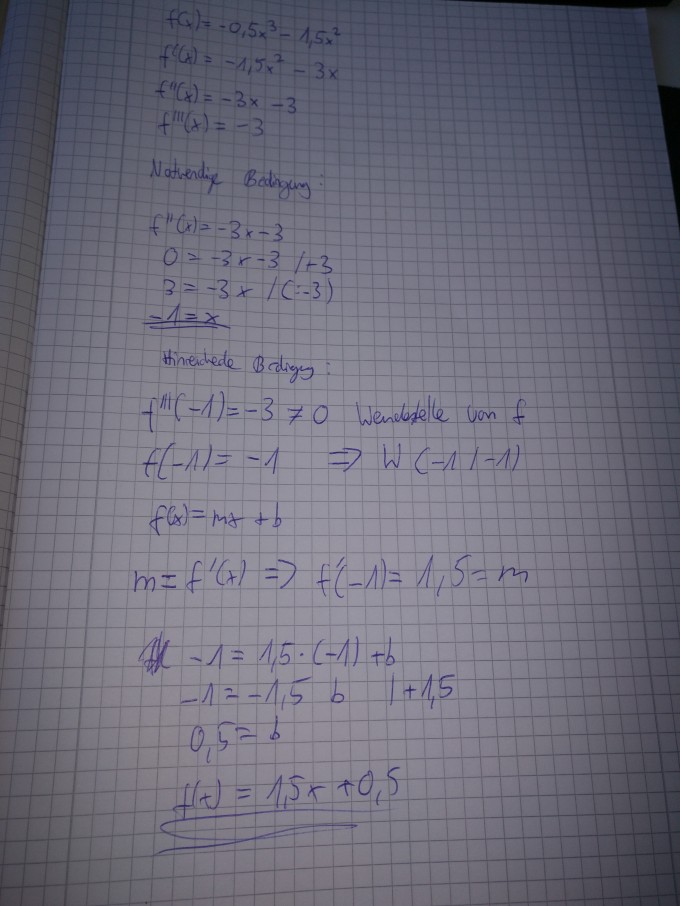 f(x) = -0,5x³ - 1,5x²
f'(x) = -1,5x² - 3x
f''(x) = -3x - 3
f'''(x) = -3
Notwendige Bedingung:
f''(x) = -3x - 3
0 = -3x - 3 /+3
3 = -3x /(:-3)
-1 = x
Hinreichede Bedigug:
f'''(-1) = -3 ≠ 0 Wendestelle von f
f(-1) = -1 ⇒ W (-1 / -1)
f(x) = mx + b
m = f'(x) ⇒ f'(-1) = 1,5 = m
-1 = 1,5 · (-1) + b
-1 = -1,5 b |+1,5
0,5 = b
f(x) = 1,5x + 0,5